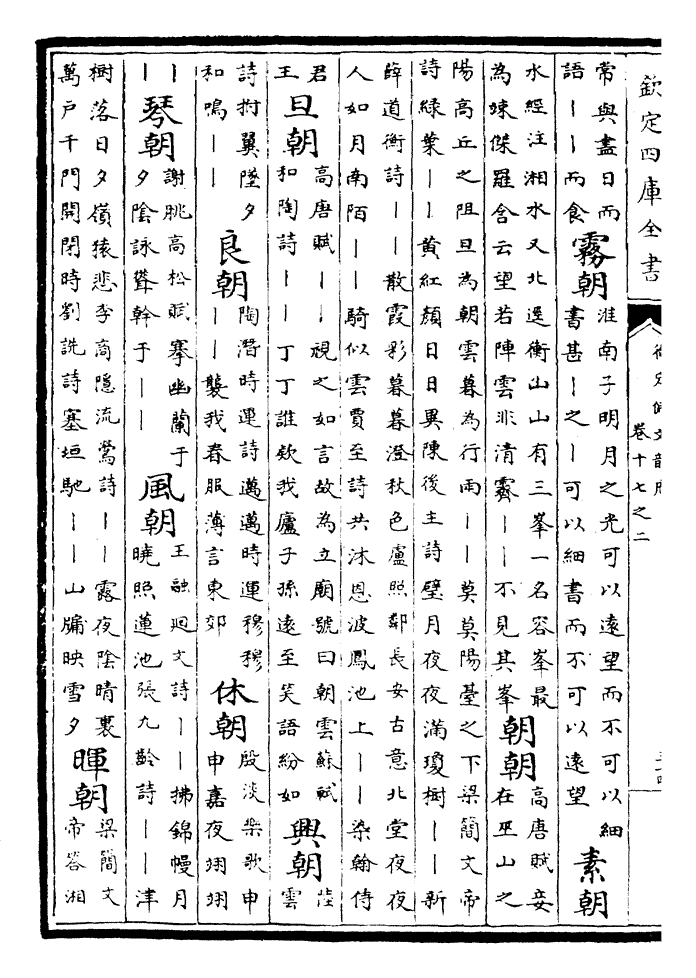 欽定四庫全書
卷十七之二
常與盡日而
語丨丨而食
霧朝
淮南子明月之光可以遠望而不可以細
書甚丨之丨可以細書而不可以遠望
素朝
水經注湘水又北逕衡山山有三峯一名容峯最
為竦傑羅含云望若陣雲非清霽丨丨不見其峯
朝朝
高唐賦妾
在巫山之
陽高丘之阻旦為朝雲暮為行雨丨丨莫莫陽臺之下梁簡文帝
詩綠葉丨丨黃紅顏日日異陳後主詩璧月夜夜滿瓊樹丨丨新
薛道衡詩丨丨散霞彩暮暮澄秋色盧照鄰長安古意北堂夜夜
人如月南陌丨丨騎似雲賈至詩共沐恩波鳳池上丨丨染翰侍
君
王
旦朝
高唐賦丨丨視之如言故為立廟號曰朝雲蘇軾
和陶詩丨丨丁丁誰欸我廬子孫遠至笑語紛如
興朝
陸
雲
詩拊翼墜夕
和鳴丨丨
良朝
陶潛時運詩邁邁時運穆穆
丨丨襲我春服薄言東郊
休朝
殷淡樂歌申
申嘉夜翊翊
丨
丨
琴朝
謝朓高松賦搴幽蘭于
夕陰詠聳幹于丨丨
風朝
王融迴文詩丨丨拂錦幔月
曉照蓮池張九齡詩丨丨津
樹落日夕嶺猿悲李商隱流鶯詩丨丨露夜陰晴裏
萬戶千門開閉時劉詵詩塞垣馳丨丨山牖映雪夕
暉朝
梁簡文
帝答湘